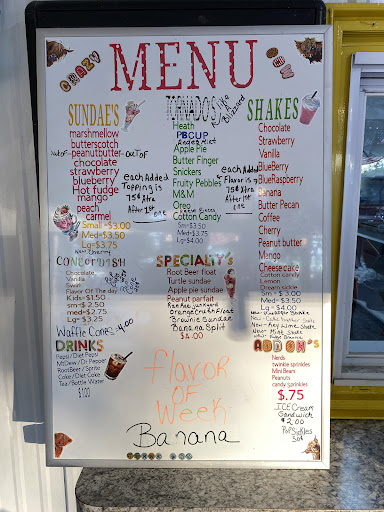 CRAZY
MENU
COW
SUNDAE'S
marshmellow
butterscotch
outof-peanutbutter-outof
chocolate
strawberry
blueberry
Hot fudge
mango
peach
carmel
Small =$3.00
Med=$3.50
Lg=$3.75
New-Cherry
each Added
Topping is
75¢ Xtra
After 1st
one
TORNADO'S
Like
a
Blizzard
Heath
PBCUP
Andes Mint
Apple Pie
Butter Finger
Snickers
Fruity Pebbles
M&M
Oreo
Cotton Candy
Sm=$3.50
Med=$3.75
Lg=$4.00
each Added
Flavor is
75¢ Xtra
After 1st
one
SHAKES
Chocolate
Strawberry
Vanilla
BlueBerry
BlueRaspberry
Banana
Butter Pecan
Coffee
Cherry
Peanut butter
Mango
Cheese cake
Cotton candy
Lemon
Dream sickle
Sm = $3.00
Med = $3.50
Lg = $4.00
New-Key Lime Shake
New-Mint Shake
CONE OR DISH
Chocolate
Vanilla
Swirl
Flavor Of The day
Kids=$1.50
sm=$2.50
med=$2.75
Lg=$3.25
Waffle Cones-4.00
SPECIALTY'S
Root Beer float
Turtle sundae
Apple pie sundae
Peanut parfait
Orange Crush Float
Brownie Sundae
Banana Split
$4.00
DRINKS
Pepsi/Diet Pepsi
MtDew/Dr Pepper
RootBeer/Sprite
Coke/Diet Coke
Tea/Bottle Water
$1.00
flavor
of
Week
Banana
ADD ON'S
Nerds
twinkle sprinkles
Mini Bears
Peanuts
candy sprinkles
$.75
ICE Cream
Sandwich
$2.00
PopSickles
50¢